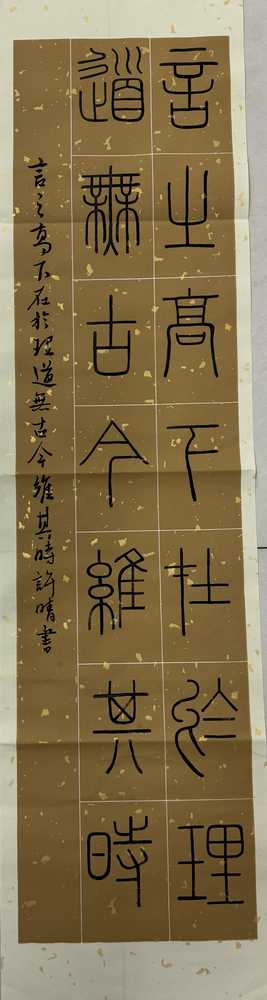 言之高下在於理
道無古今維其時
言之高下在於理道無古今維其時許晴書